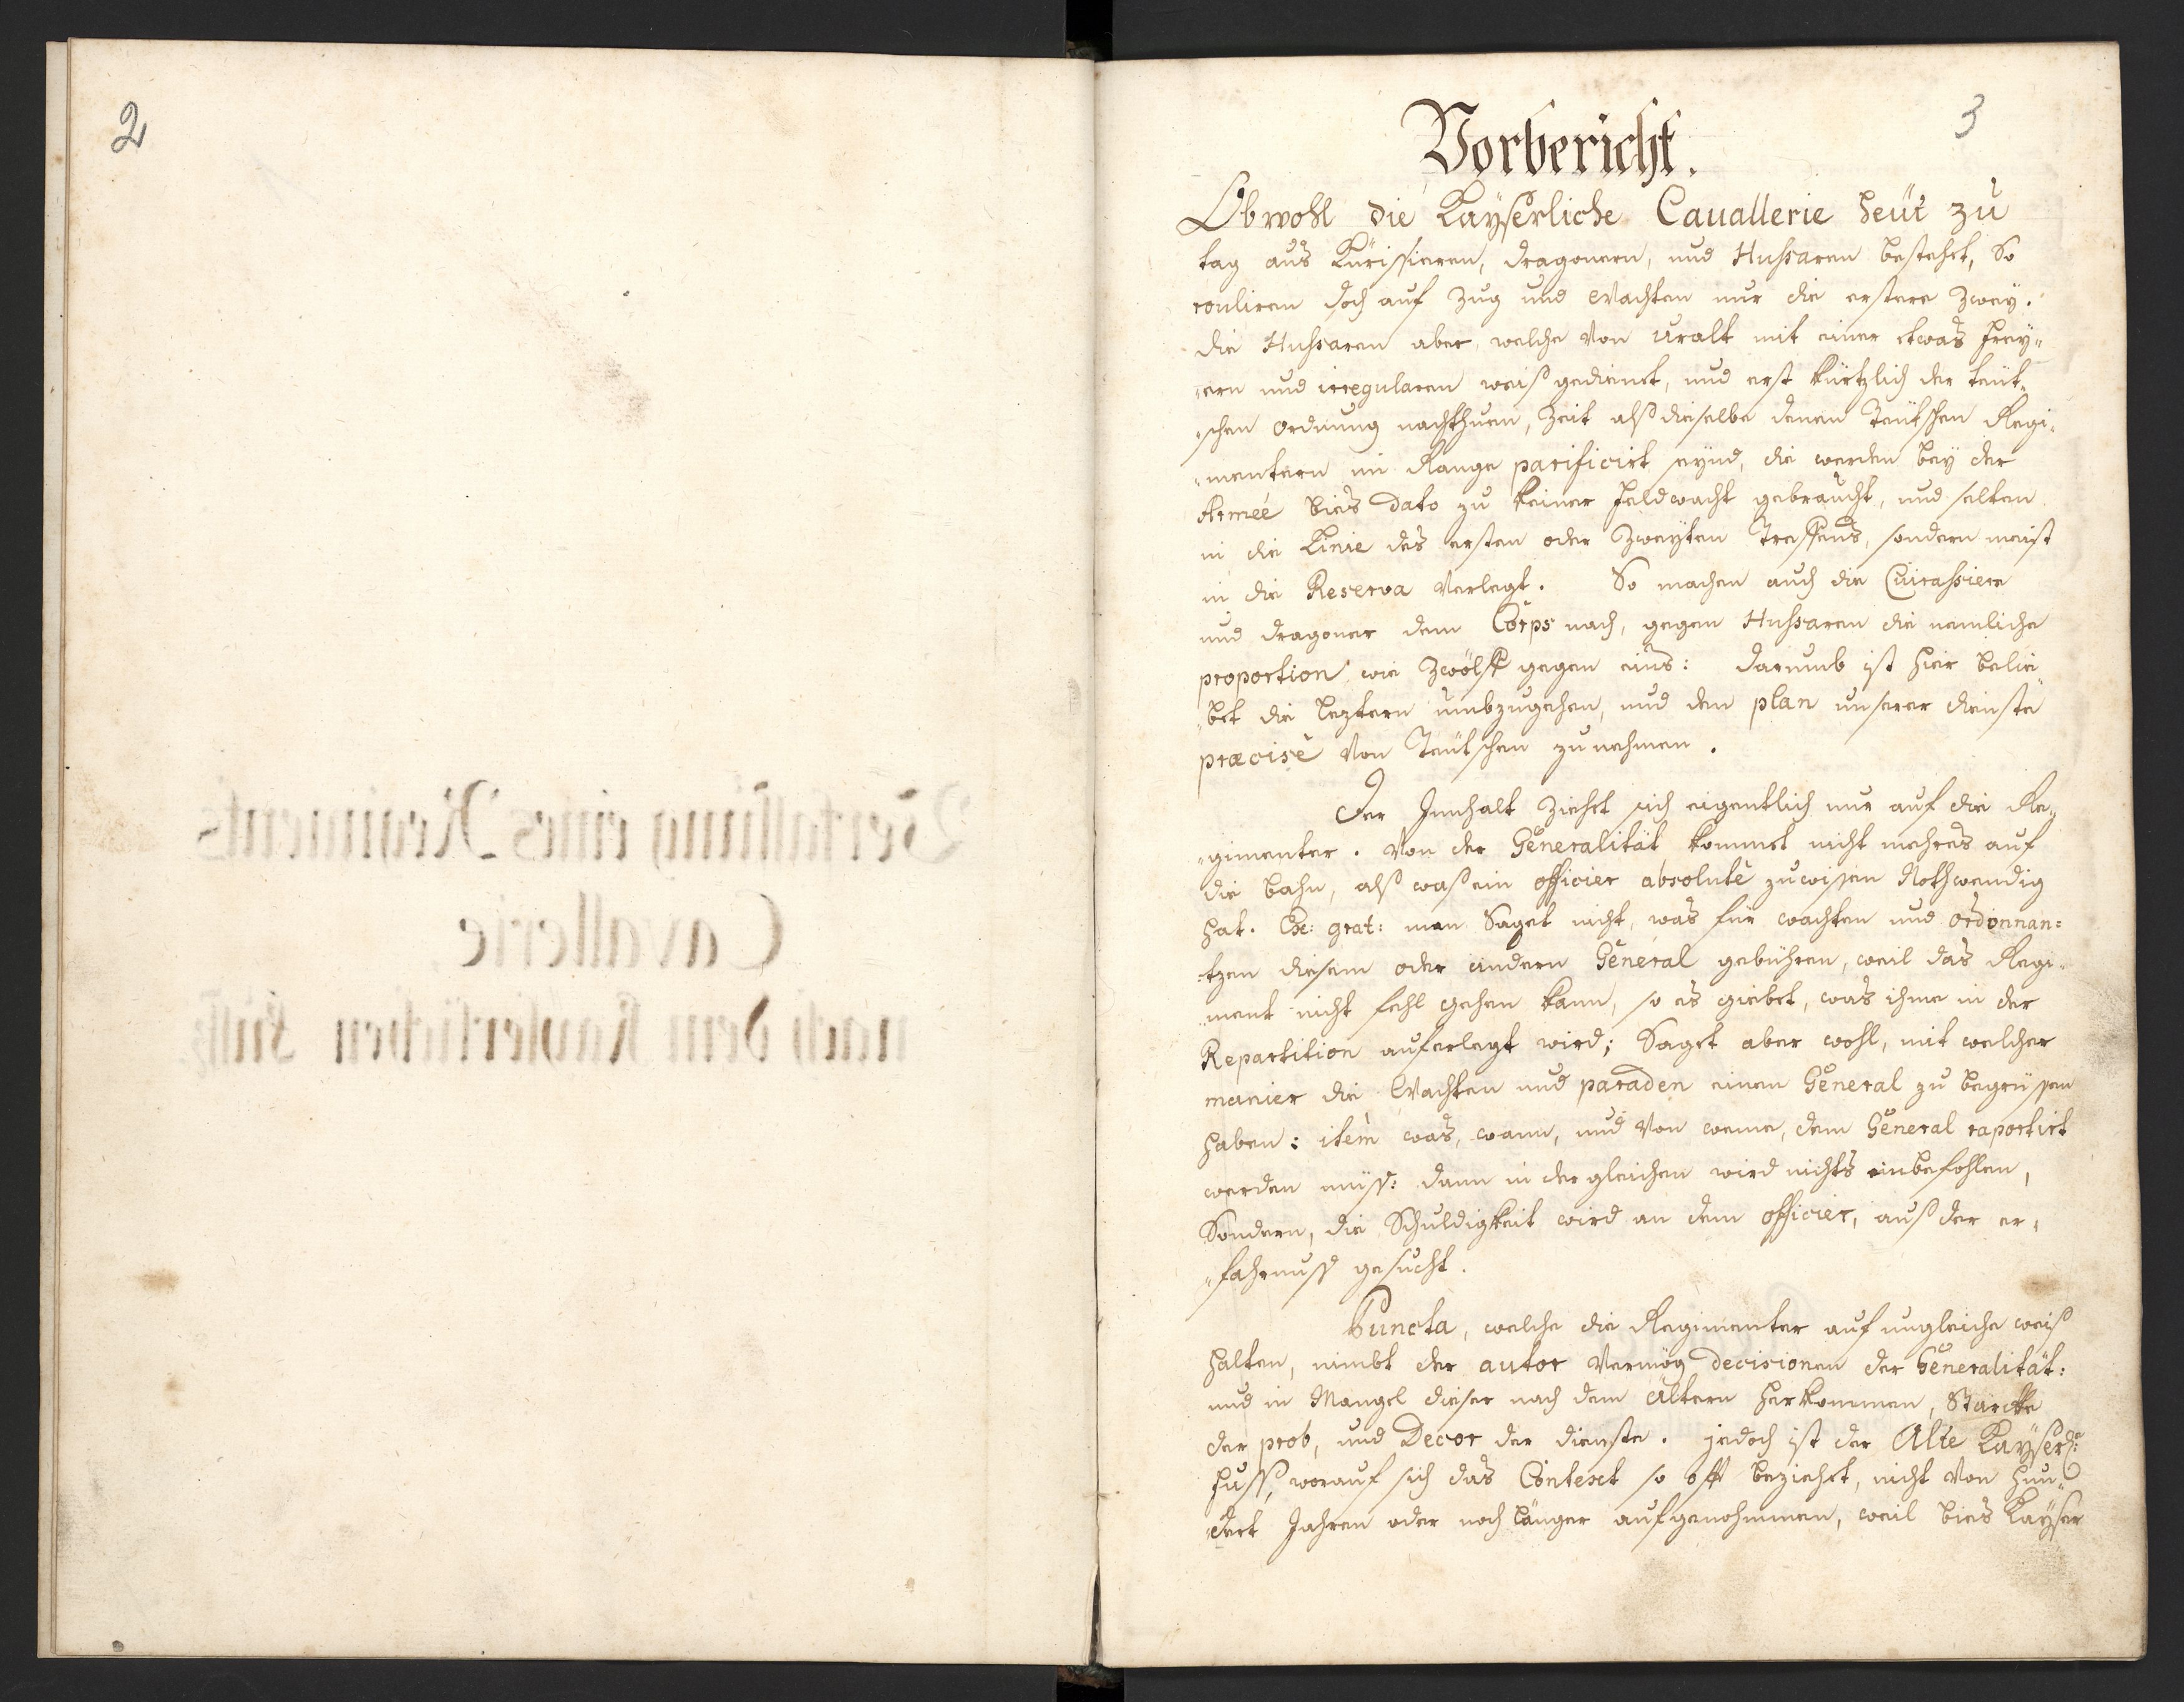 2
3
Vorbericht.
Obwohl die Kayserliche Cauallerie heüt zu
tag aus Kürissieren, dragonern, und Hussaren bestehet, So
rouliren doch auf Zug und Wachten nur die erstere Zwey.
die Hussaren aber, welche von uralt mit einer etwas frey„
„ern und irregularen weis gedienet, und erst kürtzlich der teüt„
„schen ordnung nachthuen, Zeit alß dieselbe denen Teütschen Regi„
„mentern in Range parificirt seynd, die werden bey der
Armeé bies dato zu keiner feldwacht gebraucht, und selten
in die Linie des ersten oder Zweyten Treffens, sondern meist
in die Reserva verlegt. So machen auch die Cuirassiere
und dragoner dem Corps nach, gegen Hussaren die nemliche
proportion wie Zwölff gegen eins: darumb ist hier belie„
„bet die leztern umbzugehen, und den plan unserer dienste
præcisè von Teütschen zu nehmen.
Der Innhalt ziehet sich eigentlich nur auf die Re„
„gimenter. von der Generalität kommet nicht mehres auf
die bahn, alß waß ein officier absolutè zu wissen Nothwendig
hat. Ex: grat: man Saget nicht, was für wachten und ordonnan=
„tzen diesem oder andern General gebühren, weil das Regi„
„ment nicht fehl gehen kann, so es giebet, was ihme in der
Repartition auferlegt wird; Saget aber wohl, mit welcher
manier die Wachten und paraden einen General zu begrüssen
haben: item was, wann, und von weme, dem General raportirt
werden müss: dann in dergleichen wird nichts einbefohlen,
Sondern, die Schuldigkeit wird an dem officier, auß der er„
„fahrnuss gesucht.
Puncta, welche die Regimenter auf ungleiche weiß
halten, nimbt der autor vermög decisionen der Generalität:
und in Mangel dieser nach dem ältern herkommen, Stärcke
der prob, und Decor der dienste. jedoch ist der Alte Kayserl:
fuss, worauf sich das Context so offt beziehet, nicht von hun„
„dert Jahren oder noch länger aufgenohmmen, weil bies Kayser
Verfassung eines Regiments
Cavallerie
nach dem Kayserlichen Fuss